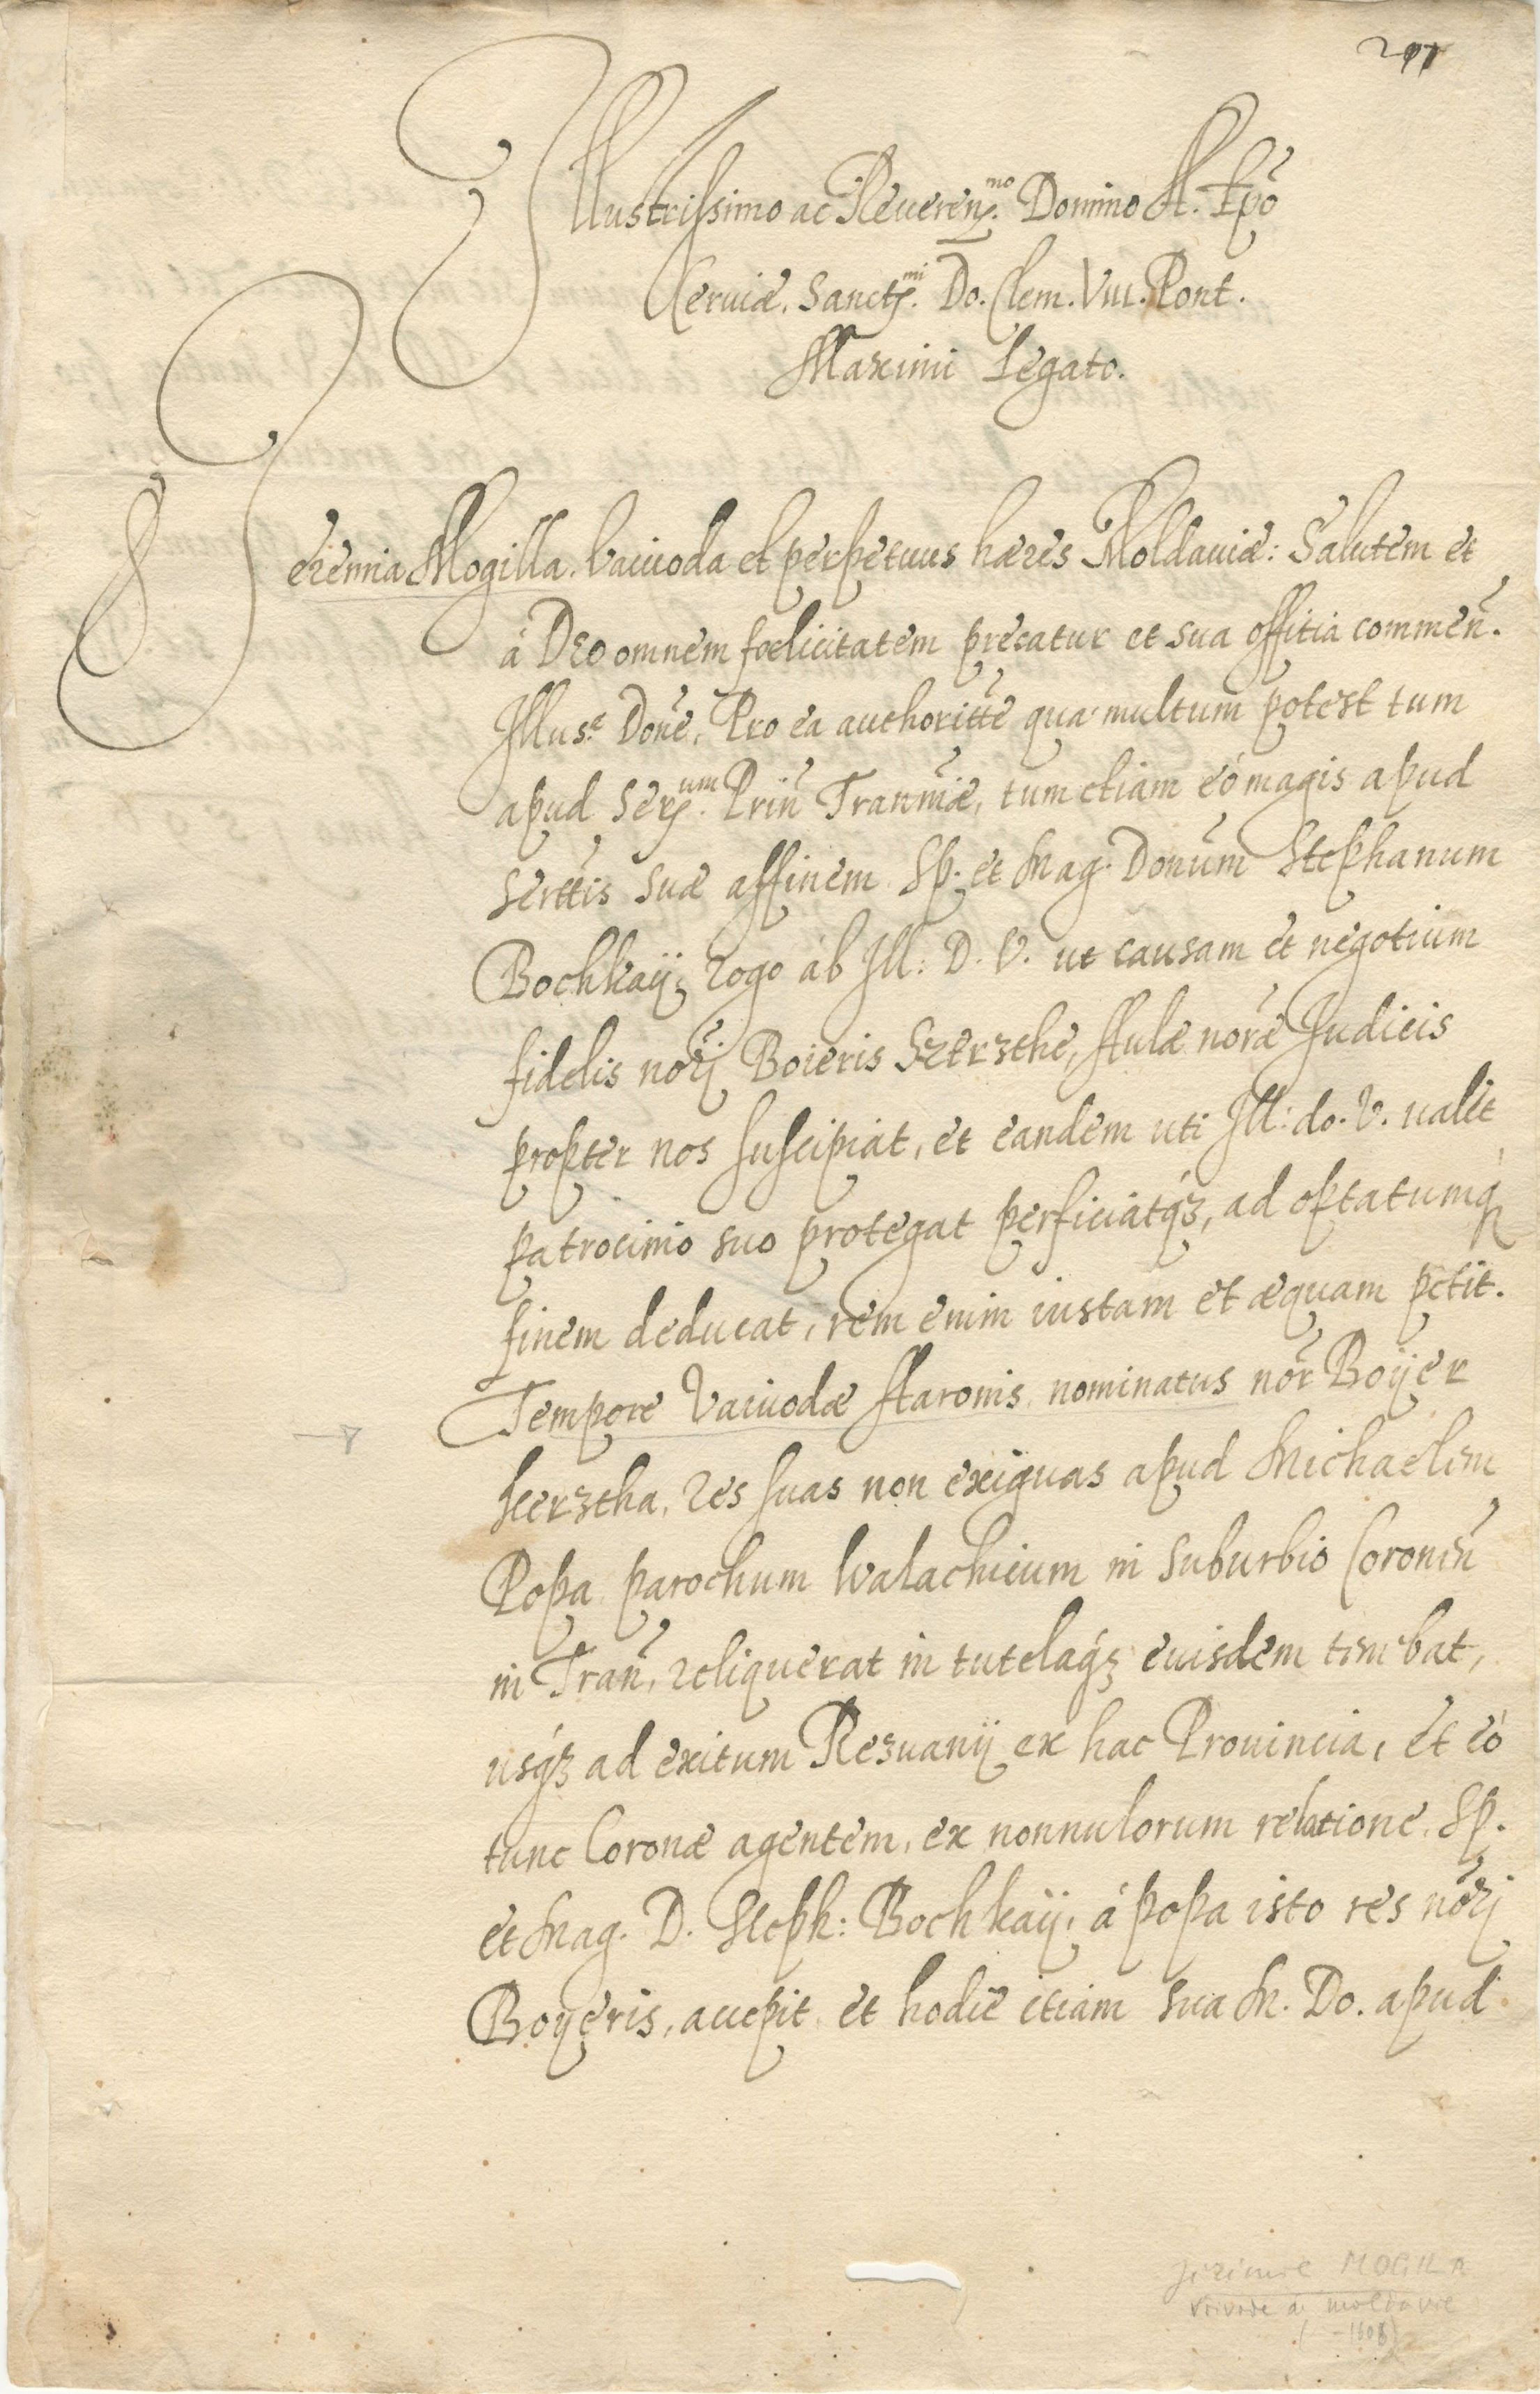 Illustrissimo ac Reueren. mo Domino A. Epō
Ceruiæ. Sanctss. mi Do. Clem. VIII. Pont.
Maximi Legato.
Jeremia Mogilla. Vaiuoda et perpetuus hæres Moldauiæ: Salutem et
á DEO omnem fœlicitatem precatur et sua offitia commen̄.
Illus.e Don̄e. Pro ea authoritt̄e qua multum potest tum
apud Ser. um Prin̄ Tran̄niæ, tum etiam eó magis apud
Sertt̄is suæ affinem Sp. et Mag. Don̄um Stephanum
Bochkaÿ, rogo ab Ill: D. V. ut causam et negotium
fidelis nor̄j Boieris Szerzthe, Aulæ nor̄æ Judicis
propter nos suscipiat, et eandem uti Ill: do. V. ualet
patrocinio suo protegat perficiatq́ꝫ, ad optatumq́
finem deducat, rem enim iustam et æquam petit.
Tempore Vaiuodæ Aaronis nominatus nor̄ Boÿer
Scerztha, res suas non exiguas apud Michaelem
Popa parochum Walachicum in suburbio Coronen̄
in Tran̄, reliquerat in tutelaq́ꝫ euisdem tenebat,
usq́ꝫ ad exitum Rezuanÿ ex hac Prouincia, et eó
tunc Coronæ agentem, ex nonnulorum relatione, Sp.
et Mag. D. Steph: Bochkaÿ, á popa isto res nor̄j
Boÿeris, accepit et hodie etiam sua M. Do. apud
MOGILA
moldavie